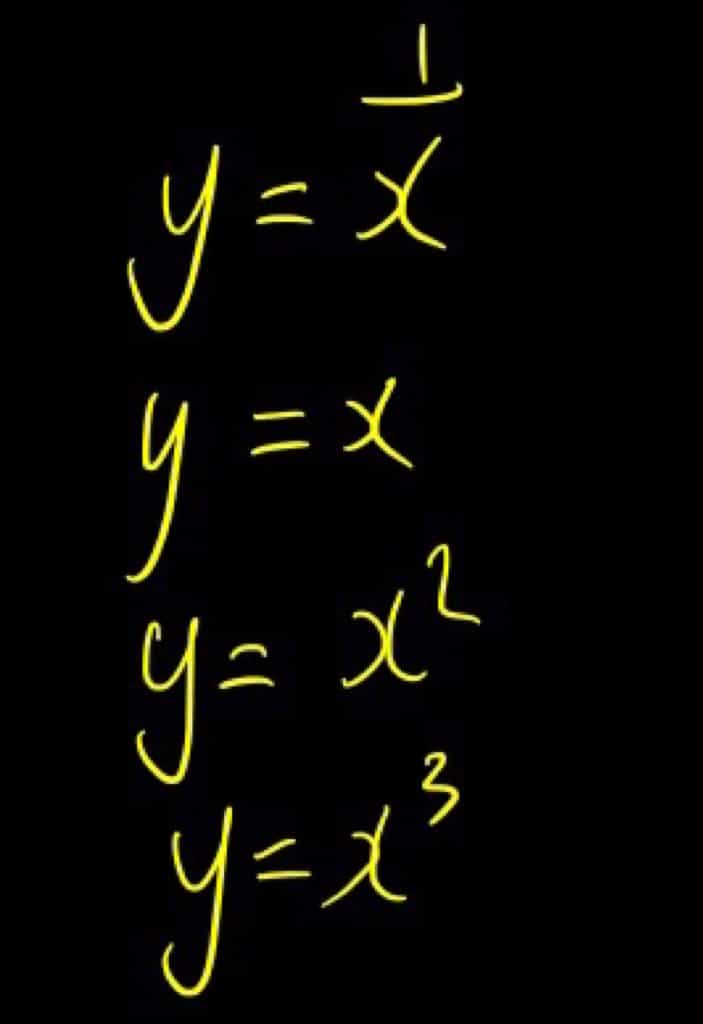 y = 1/x
y = x
y = x²
y = x³